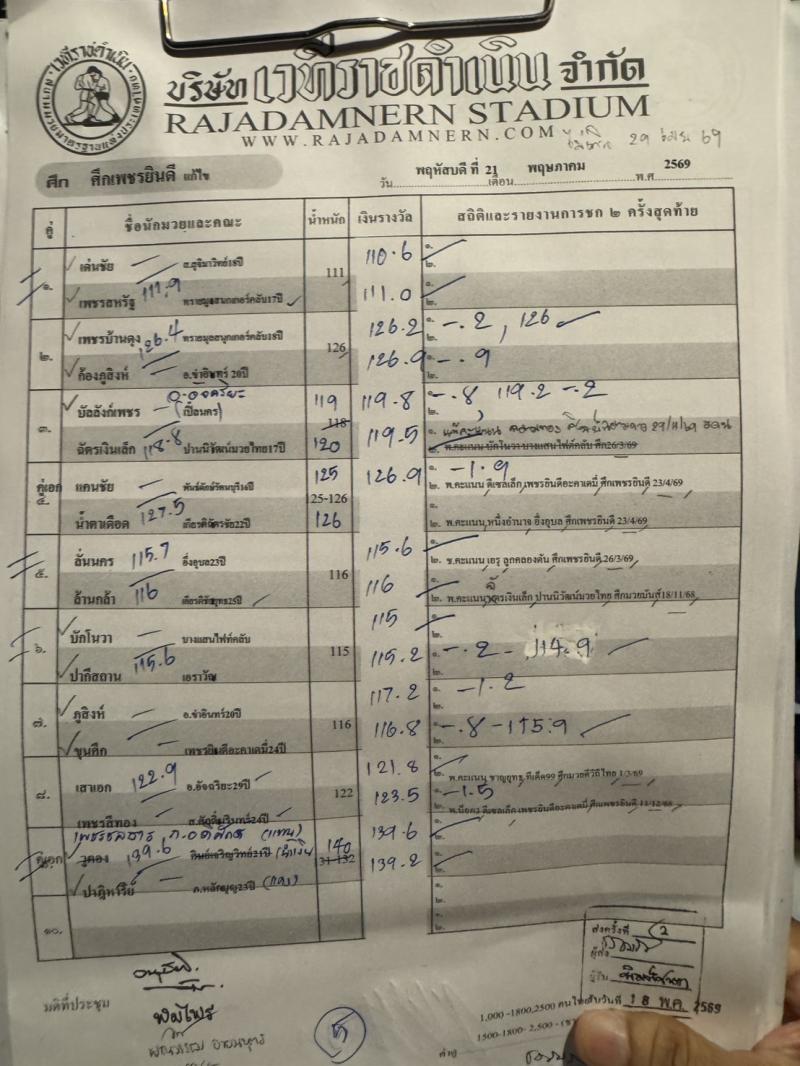 บริษัท เวทีราชดำเนิน จำกัด
RAJADAMNERN STADIUM
WWW.RAJADAMNERN.COM
29 69
ศึก ศึกเพชรยินดี แก้ไข
วัน พฤหัสบดี ที่ 21 เดือน พฤษภาคม พ.ศ 2569
คู่ ชื่อนักมวยและคณะ น้ำหนัก เงินรางวัล สถิติและรายงานการชก ๒ ครั้งสุดท้าย
๑. เด่นชัย ส.สุจิมาวิทย์18ปี 111 110.6 ๑. ๒.
เพชรสหรัฐ 111.9 ทรายมูลสนุกเกอร์คลับ17ปี 111.0 ๑. ๒.
๒. เพชรบ้านดุง 126.4 ทรายมูลสนุกเกอร์คลับ18ปี 126 126.2 ๑. -.2, 126 ๒.
ก้องภูสิงห์ อ.ขำอินทร์ 20ปี 126.9 ๑. -.9 ๒.
๓. บัลลังก์เพชร อ.อัจฉริยะ (เปี๊ยนคร) 119 119.8 ๑. -.8, 119.2 -.2 ๒.
118
ฉัตรเงินเล็ก 118.8 ปานนิวัฒน์มวยไทย17ปี 120 119.5 ๑. แพ้คะแนน 29/4/69
พ.คะแนน บักโนวา บางแสนไฟต์คลับ ศึก26/3/69
คู่เอก ๔. แคนชัย พันธ์ศักดิ์รัตนบุรี14ปี 125 126.9 ๑. -1.9
25-126 ๒. พ.คะแนน ดีเซลเล็ก เพชรยินดีอะคาเดมี่ ศึกเพชรยินดี 23/4/69
น้ำตาเดือด 127.5 เกียรติฉัตรชัย22ปี 126 ๑. ๒. พ.คะแนน หนึ่งอำนาจ อึ่งอุบล ศึกเพชรยินดี 23/4/69
๕. ลั่นนคร 115.7 อึ่งอุบล23ปี 116 115.6 ๑. ๒. ช.คะแนน เอรู ลูกคลองตัน ศึกเพชรยินดี 26/3/69
ล้านกล้า 116 25ปี 116 ๑. ๒. พ.คะแนน ฉัตรเงินเล็ก ปานนิวัฒน์มวยไทย ศึกมวยมันส์18/11/68
๖. บักโนวา บางแสนไฟท์คลับ 115 115 ๑. ๒.
ปากีสถาน 115.6 เอราวัณ 115.2 ๑. -.2 - 114.9 ๒.
๗. ภูสิงห์ อ.ขำอินทร์20ปี 116 117.2 ๑. -1.2 ๒.
ขุนศึก เพชรยินดีอะคาเดมี่24ปี 116.8 ๑. -.8 -115.9 ๒.
๘. เสาเอก 122.9 อ.อัจฉริยะ29ปี 122 121.8 ๑. ๒. พ.คะแนน ชาญยุทธ ทีเด็ด99 ศึกมวยดีวิถีไทย 1/3/69
เพชรสีทอง 24ปี 123.5 ๑. -1.5 ๒. พ.น็อค3 ดีเซลเล็ก เพชรยินดีอะคาเดมี่ ศึกเพชรยินดี 11/12/68
เพชรชลธาร ภ.อดิศักร (แทน)
คู่เอก ๙. 139.6 21ปี (น้ำเงิน) 140 139.6 ๑. ๒.
31-132
ปาฏิหาริย์ ภ.หลักบุญ23ปี (แดง) 139.2 ๑. ๒.
๑๐. ๑. ๒. ๑. ๒.
ส่งครั้งที่ 2
ผู้ส่ง
ผู้รับ
วันที่ 18 พ.ค. 2569
มติที่ประชุม
1,000 -1800,2500
1500-1800- 2,500